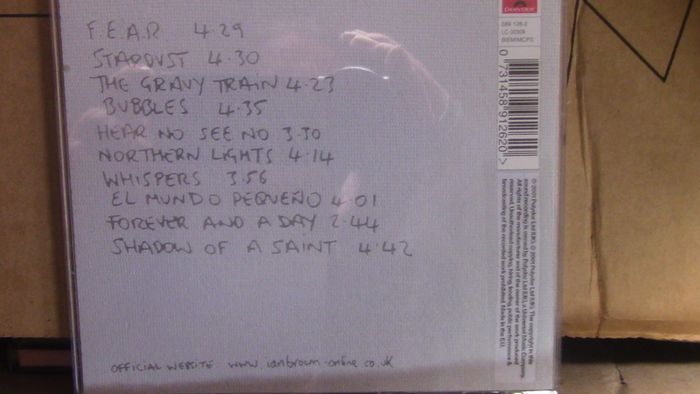 F.E.A.R 4.29
STARDUST 4.30
THE GRAVY TRAIN 4.23
BUBBLES 4.35
HEAR NO SEE NO 3.30
NORTHERN LIGHTS 4.14
WHISPERS 3.56
EL MUNDO PEQUEÑO 4.01
FOREVER AND A DAY 2.44
SHADOW OF A SAINT 4.42
OFFICIAL WEBSITE www.ianbrown-online.co.uk
Polydor
589 126-2
LC 00309
BIEM/MCPS
0 731458 912620 >